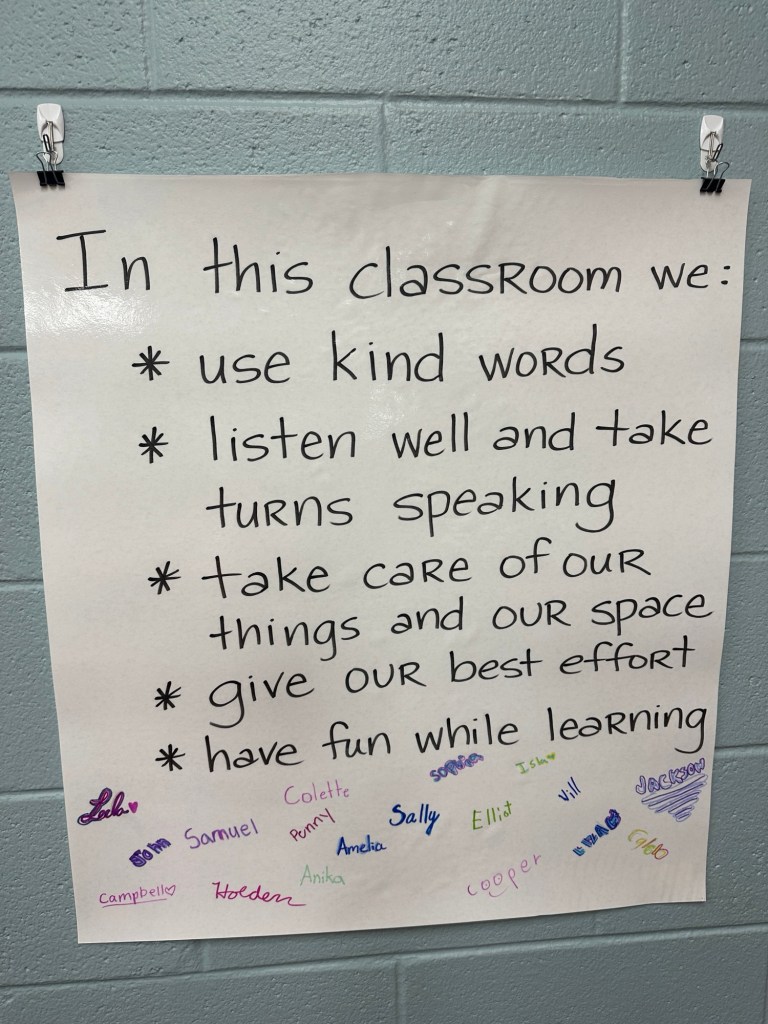 In this classroom we:
* use kind words
* listen well and take
turns speaking
* take care of our
things and our space
* give our best effort
* have fun while learning
Sophia
Isla
Leela
Colette
Vill
Jackson
John
Samuel
Penny
Sally
Elliot
Amelia
Campbell
Holden
Anika
Cooper